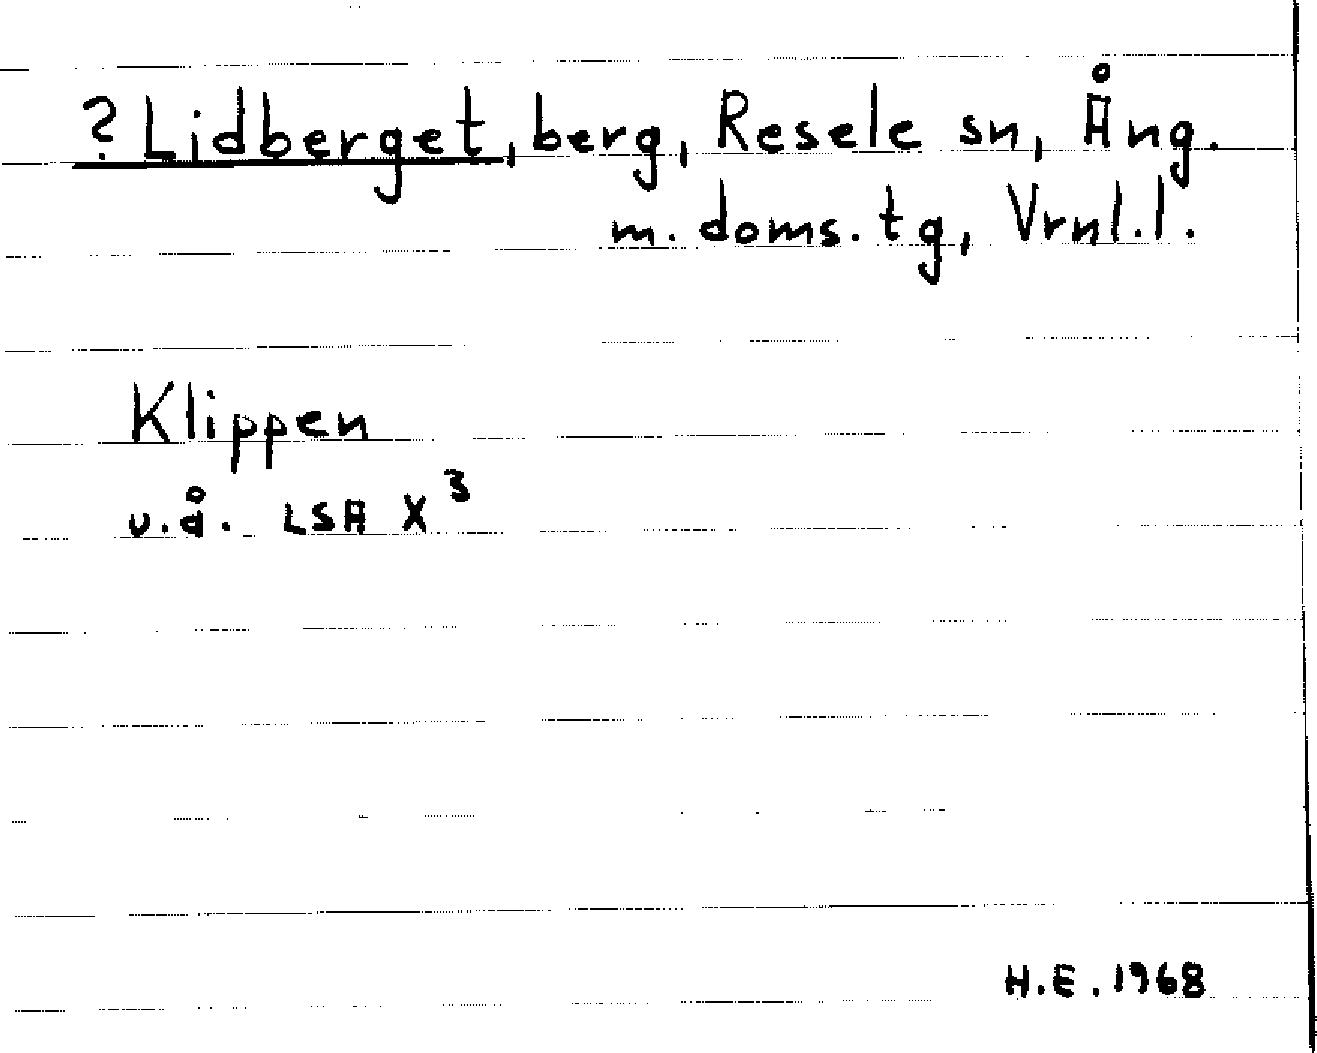 ? Lidberget, berg, Resele sn, Ång.
m. doms. tg, Vrnl.l.
Klippen
u.å. LSA X³
H.E. 1968